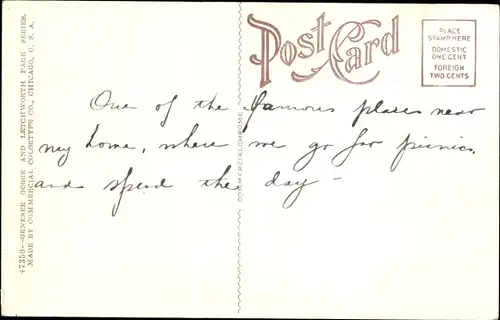 47350—GENESEE GORGE AND LETCHWORTH PARK SERIES.
MADE BY COMMERCIAL COLORTYPE CO., CHICAGO, U. S. A.
Post Card
PLACE
STAMP HERE
DOMESTIC
ONE CENT
FOREIGN
TWO CENTS
COMMERCIALCHROME
One of the famous places near
my home, where we go for picnics,
and spend the day —